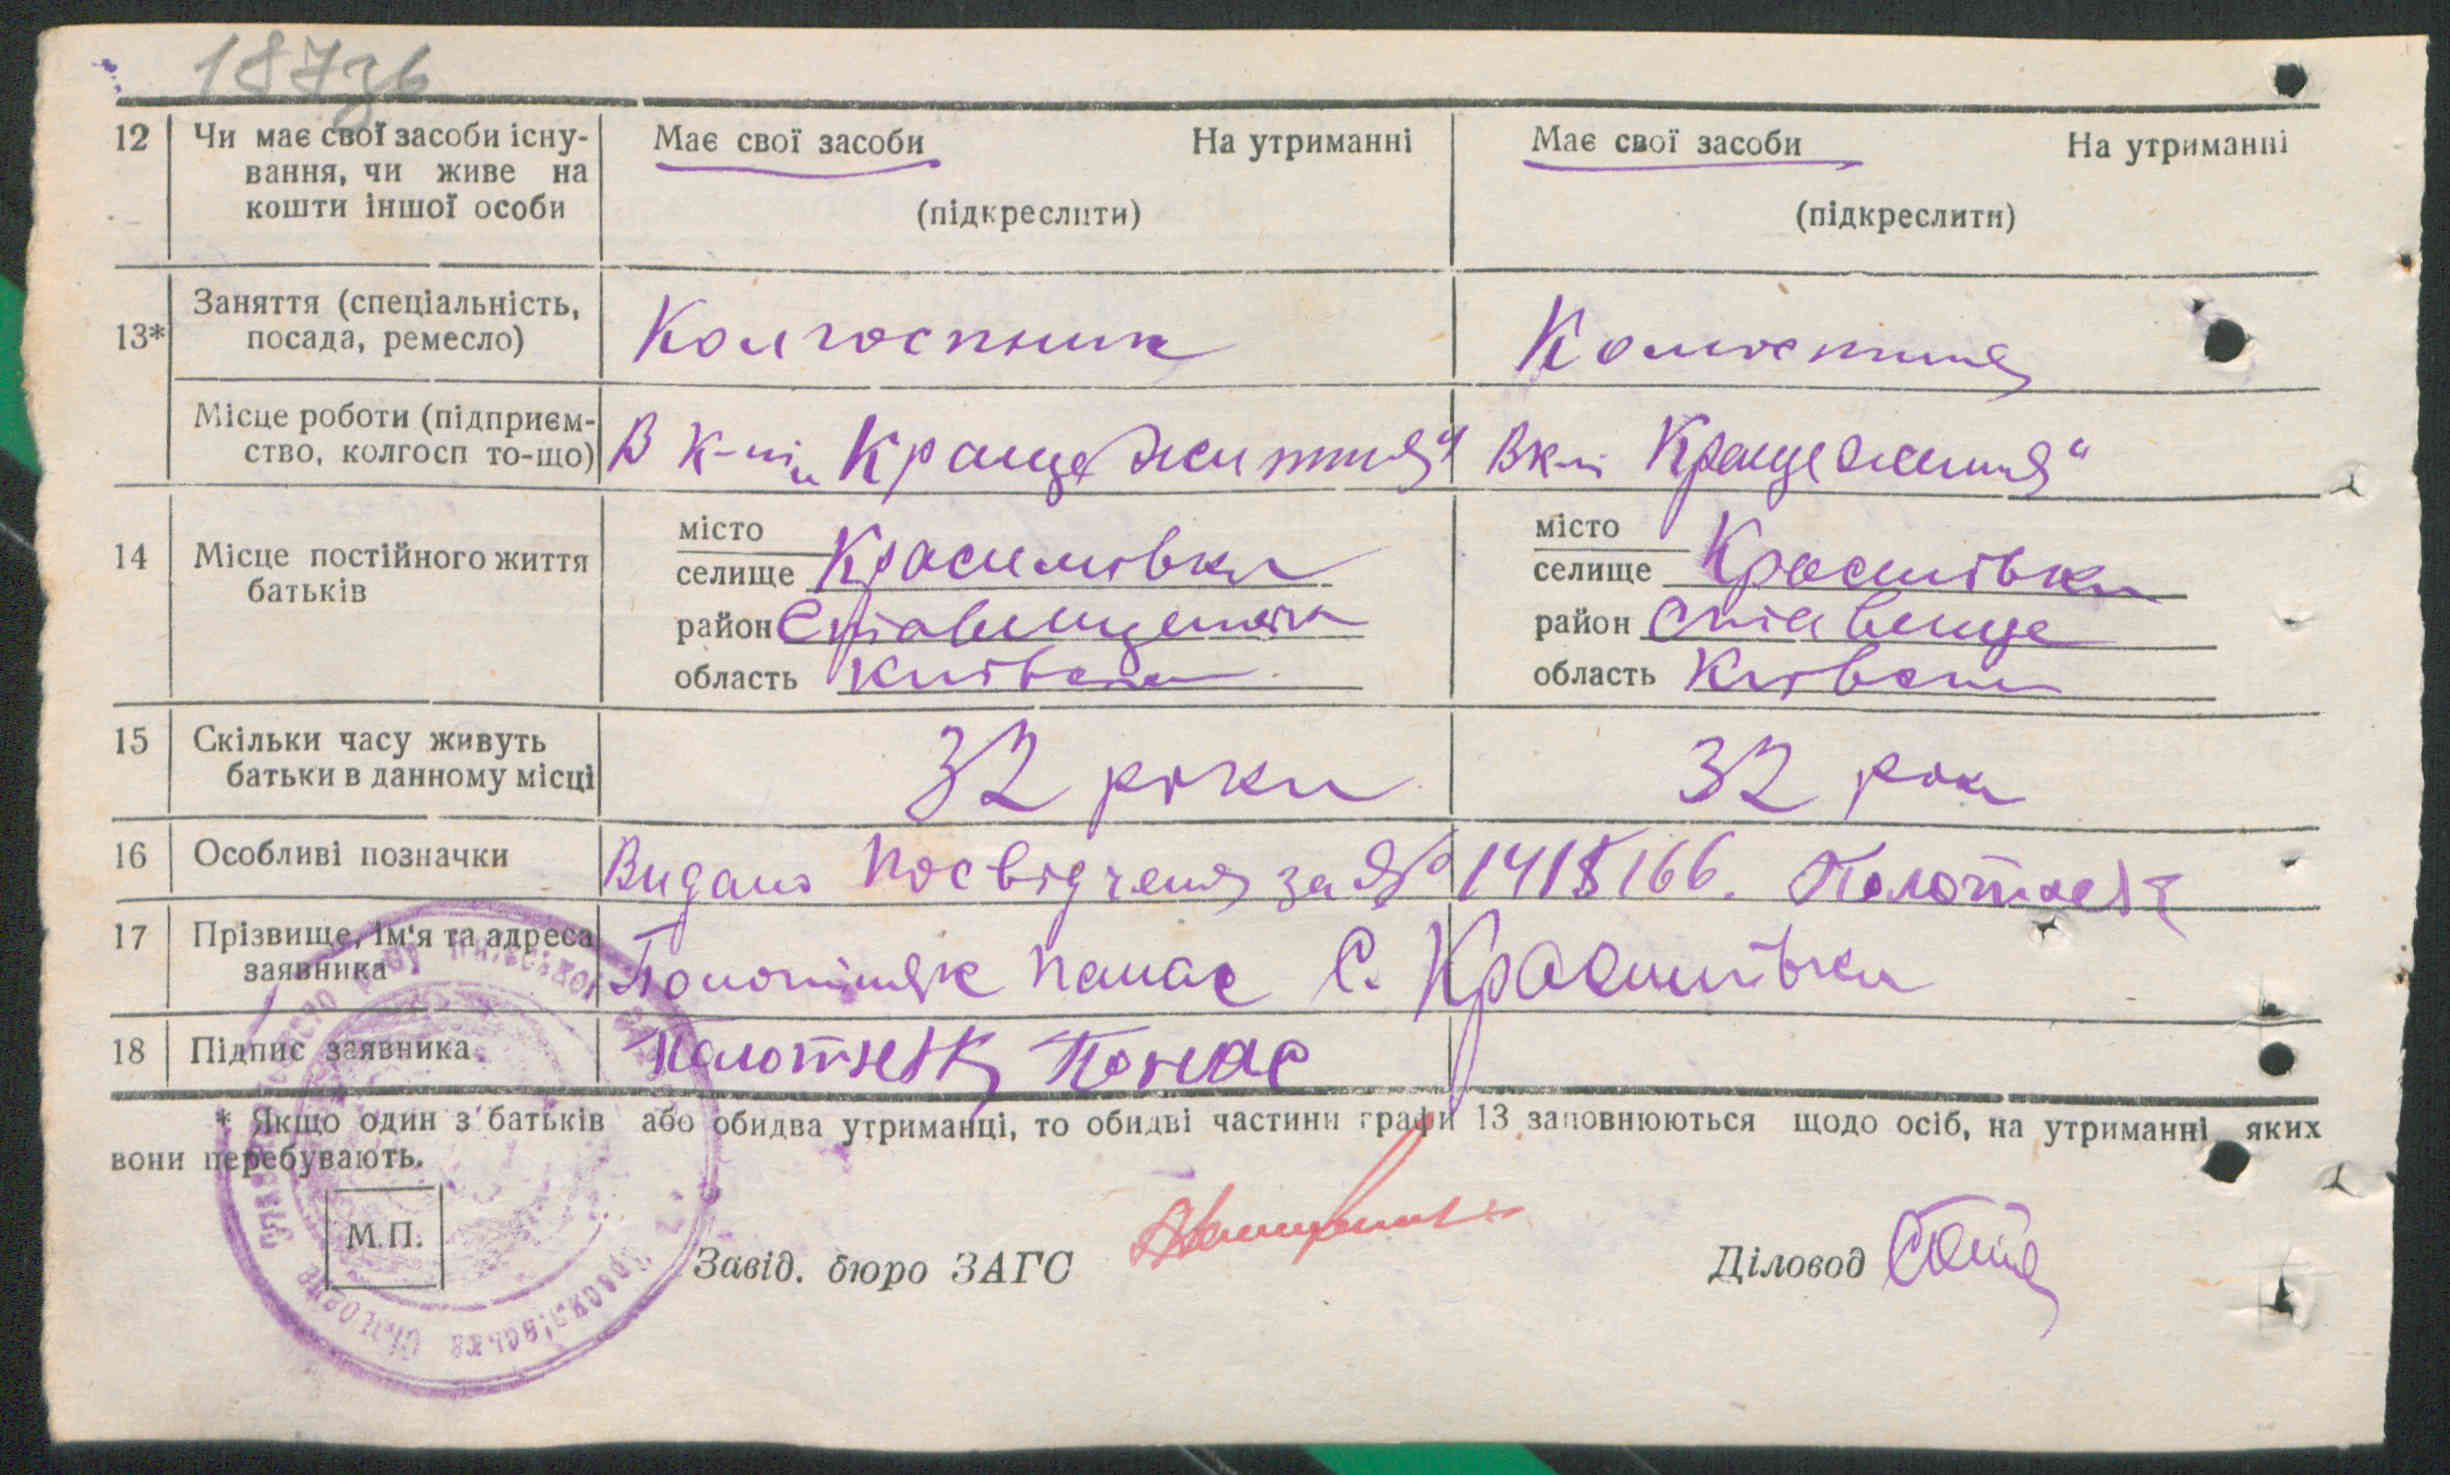 187зв
12 Чи має свої засоби існу-
вання, чи живе на
кошти іншої особи
Має свої засоби На утриманні
(підкреслити)
Має свої засоби На утриманні
(підкреслити)
13* Заняття (спеціальність,
посада, ремесло)
Колгоспник
Колгоспниця
Місце роботи (підприєм-
ство, колгосп то-що)
В к-пі „Краще життя"
В к-пі Краще життя"
14 Місце постійного життя
батьків
місто
селище Красилівка
район
область Київська
місто
селище Красилівка
район Ставище
область Київська
15 Скільки часу живуть
батьки в данному місці
32 роки
32 роки
16 Особливі позначки
Видано посвідченя за № 1415166.
17 Прізвище, ім'я та адреса
заявника
Полотняк Панас С. Красилівка
18 Підпис заявника.
Полотняк Понас
* Якщо один з батьків або обидва утриманці, то обидві частини графи 13 заповнюються щодо осіб, на утриманні яких
вони перебувають.
М.П.
Завід. бюро ЗАГС
Діловод